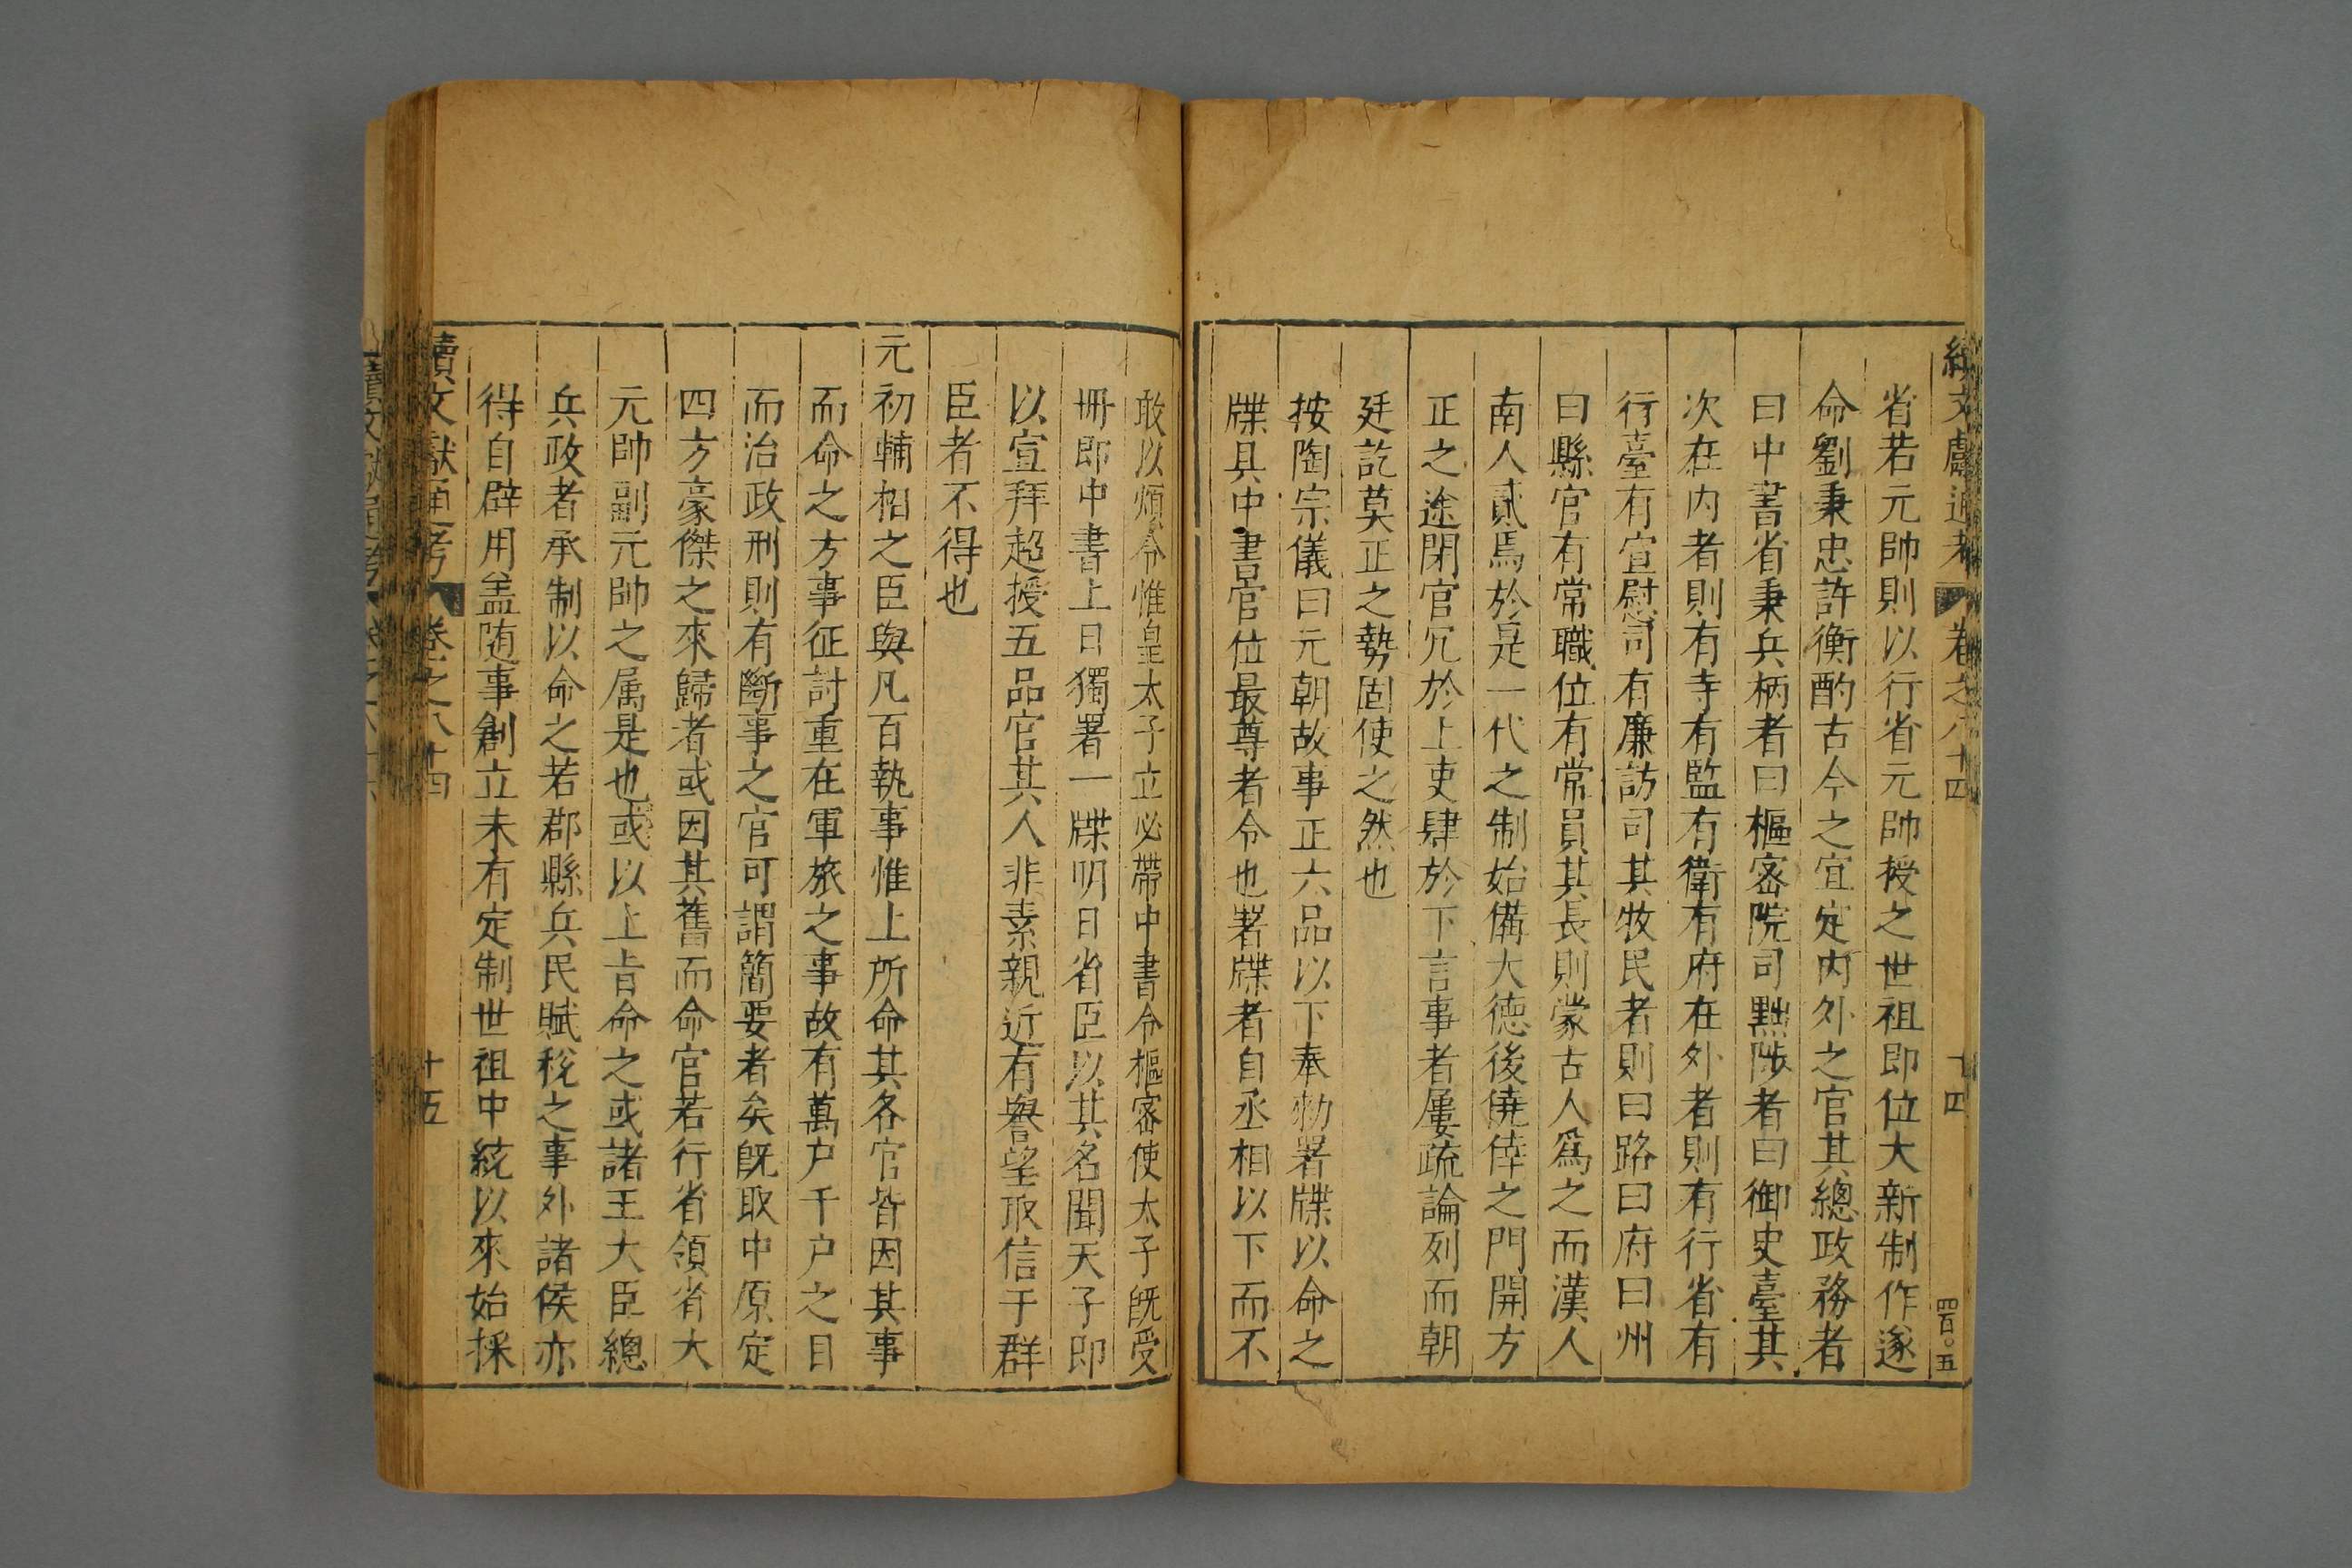 續文獻通考 卷之八十四 十四 四百〇五
省若元帥則以行省元帥授之世祖即位大新制作遂
命劉秉忠許衡酌古今之宜定内外之官其總政務者
曰中書省秉兵柄者曰樞密院司黜陟者曰御史臺其
次在内者則有寺有監有衛有府在外者則有行省有
行臺有宣慰司有廉訪司其牧民者則曰路曰府曰州
曰縣官有常職位有常員其長則蒙古人爲之而漢人
南人貳焉於是一代之制始備大德後僥倖之門開方
正之途閉官冗於上吏肆於下言事者屢疏論列而朝
廷訖莫正之勢固使之然也
按陶宗儀曰元朝故事正六品以下奉勑署牒以命之
牒具中書官位最尊者令也署牒者自丞相以下而不
敢以煩令惟皇太子立必帶中書令樞密使太子旣受
冊即中書上日獨署一牒明日省臣以其名聞天子即
以宣拜超授五品官其人非素親近有譽望取信于群
臣者不得也
元初輔相之臣與凡百執事惟上所命其各官皆因其事
而命之方事征討重在軍旅之事故有萬户千户之目
而治政刑則有斷事之官可謂簡要者矣旣取中原定
四方豪傑之來歸者或因其舊而命官若行省領省大
元帥副元帥之属是也或以上旨命之或諸王大臣總
兵政者承制以命之若郡縣兵民賦稅之事外諸侯亦
得自辟用盖随事創立未有定制世祖中統以來始採
續文獻通考 卷之八十四 十五